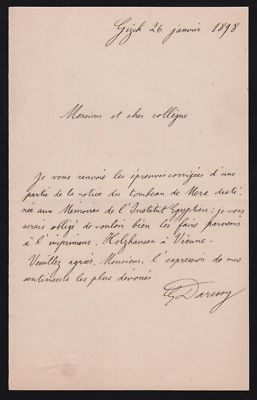 Gizeh 26 janvier 1898
Monsieur et cher collègue
Je vous renvoie les épreuves corrigées d'une
partie de la notice du tombeau de Mera desti-
née aux Mémoires de l'Institut Egyptien; je vous
serais obligé de vouloir bien les faire parvenir
à l'imprimeur, Holzhausen à Vienne.
Veuillez agréer, Monsieur, l'expression de mes
sentiments les plus dévoués
G Daressy